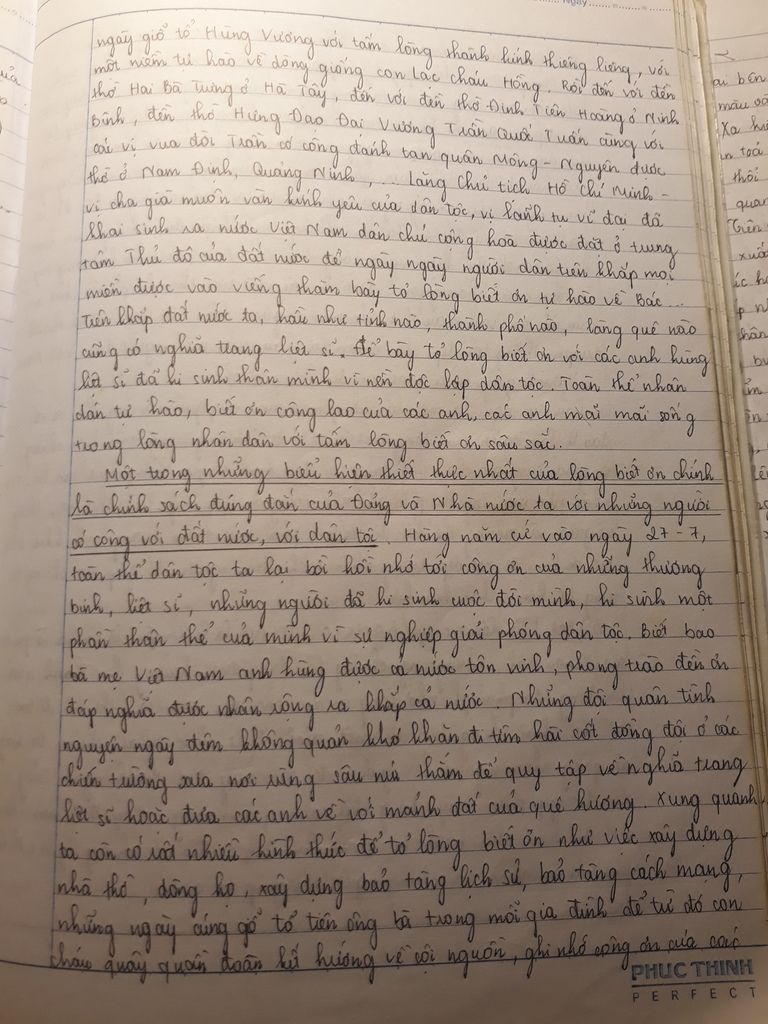 Ngày
ngày giỗ tổ Hùng Vương với tấm lòng thành kính thiêng liêng, với
một niềm tự hào về dòng giống con Lạc cháu Hồng. Rồi đến với đền
thờ Hai Bà Trưng ở Hà Tây, đến với đền thờ Đinh Tiên Hoàng ở Ninh
Bình, đền thờ Hưng Đạo Đại Vương Trần Quốc Tuấn cùng với
các vị vua đời Trần có công đánh tan quân Mông - Nguyên được
thờ ở Nam Định, Quảng Ninh, ... Lăng Chủ tịch Hồ Chí Minh -
vị cha già muôn vàn kính yêu của dân tộc, vị lãnh tụ vĩ đại đã
khai sinh ra nước Việt Nam dân chủ cộng hoà được đặt ở trung
tâm Thủ đô của đất nước để ngày ngày người dân trên khắp mọi
miền được vào viếng thăm bày tỏ lòng biết ơn tự hào về Bác...
Trên khắp đất nước ta, hầu như tỉnh nào, thành phố nào, làng quê nào
cũng có nghĩa trang liệt sĩ. Để bày tỏ lòng biết ơn với các anh hùng
liệt sĩ đã hi sinh thân mình vì nền độc lập dân tộc. Toàn thể nhân
dân tự hào, biết ơn công lao của các anh, các anh mãi mãi sống
trong lòng nhân dân với tấm lòng biết ơn sâu sắc.
Một trong những biểu hiện thiết thực nhất của lòng biết ơn chính
là chính sách đúng đắn của Đảng và Nhà nước ta với những người
có công với đất nước, với dân tộc. Hàng năm cứ vào ngày 27-7,
toàn thể dân tộc ta lại bồi hồi nhớ tới công ơn của những thương
binh, liệt sĩ, những người đã hi sinh cuộc đời mình, hi sinh một
phần thân thể của mình vì sự nghiệp giải phóng dân tộc. Biết bao
bà mẹ Việt Nam anh hùng được cả nước tôn vinh, phong trào đền ơn
đáp nghĩa được nhân rộng ra khắp cả nước. Những đội quân tình
nguyện ngày đêm không quản khó khăn đi tìm hài cốt đồng đội ở các
chiến trường xưa nơi rừng sâu núi thẳm để quy tập về nghĩa trang
liệt sĩ hoặc đưa các anh về với mảnh đất của quê hương. Xung quanh
ta còn có rất nhiều hình thức để tỏ lòng biết ơn như việc xây dựng
nhà thờ, dòng họ, xây dựng bảo tàng lịch sử, bảo tàng cách mạng,
những ngày cúng giỗ tổ tiên ông bà trong mỗi gia đình để từ đó con
cháu quây quần đoàn kết hướng về cội nguồn, ghi nhớ công ơn của các
PHUC THINH
PERFECT